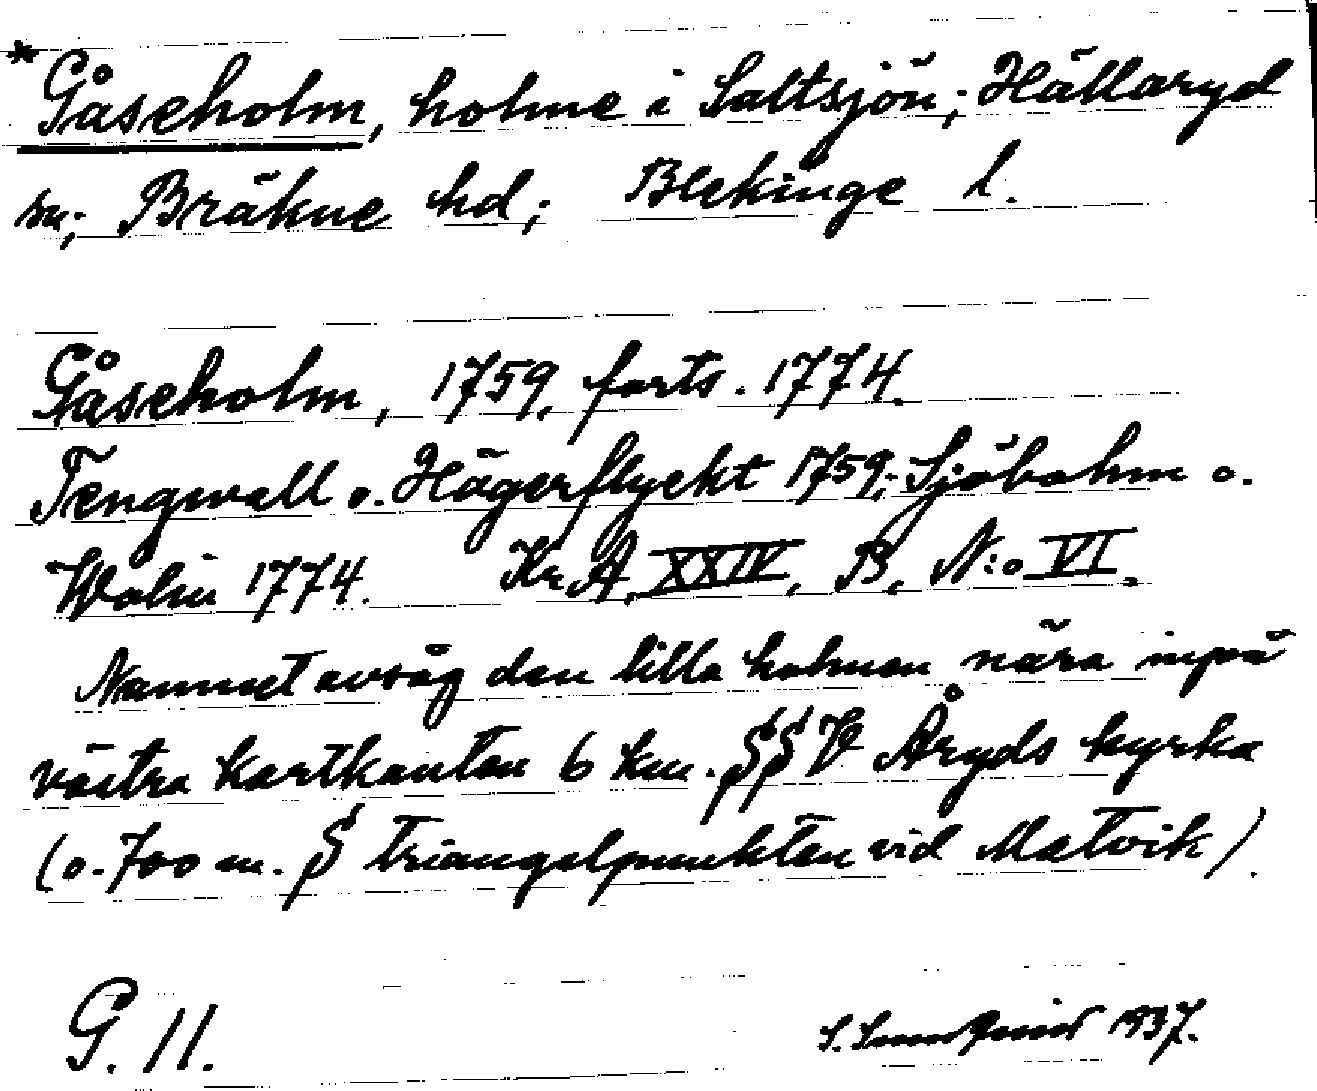 *Gåseholm, holme i Saltsjön; Hällaryd
sn; Bräkne hd; Blekinge l.
Gåseholm, 1759, forts. 1774.
Tengwall o. Hägerflyckt 1759; Sjöbohm o.
Wolin 1774. Kr.A. XXIV, B, N:o VI.
Namnet avsåg den lilla holmen nära inpå
västra kartkanten 6 km. SSV Åryds kyrka
(o. 700 m. S triangelpunkten vid Matvik).
G. 11.
S. 1937.